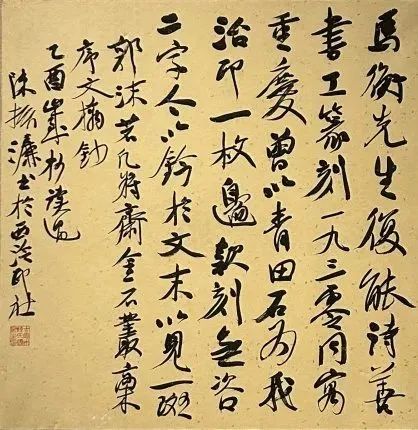 馬衡先生復能詩善
書工篆刻一九三零同寓
重慶曾以青田石為我
治印一枚邊款刻無咎
二字今以鈐於文末以見一斑
郭沫若凡將齋金石叢稿
序文摘鈔
乙酉歲杪
陳振濂書於西泠印社